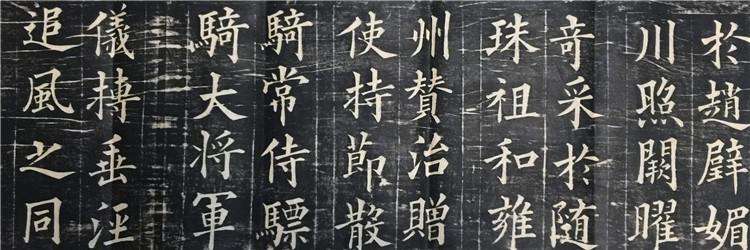 於趙璧媚
川照闕曜
奇采於随
珠祖和雍
州贊治贈
使持節散
騎常侍驃
騎大将軍
儀搏垂
追風之同